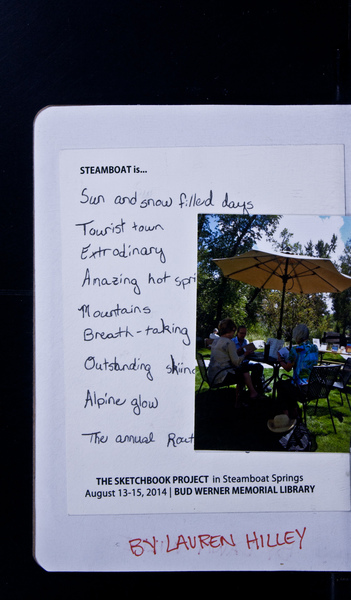 STEAMBOAT is...
Sun and snow filled days
Tourist town
Extrodinary
Amazing hot spri
Mountains
Breath-taking
Outstanding skiing
Alpine glow
The annual
THE SKETCHBOOK PROJECT in Steamboat Springs
August 13-15, 2014 | BUD WERNER MEMORIAL LIBRARY
BY LAUREN HILLEY